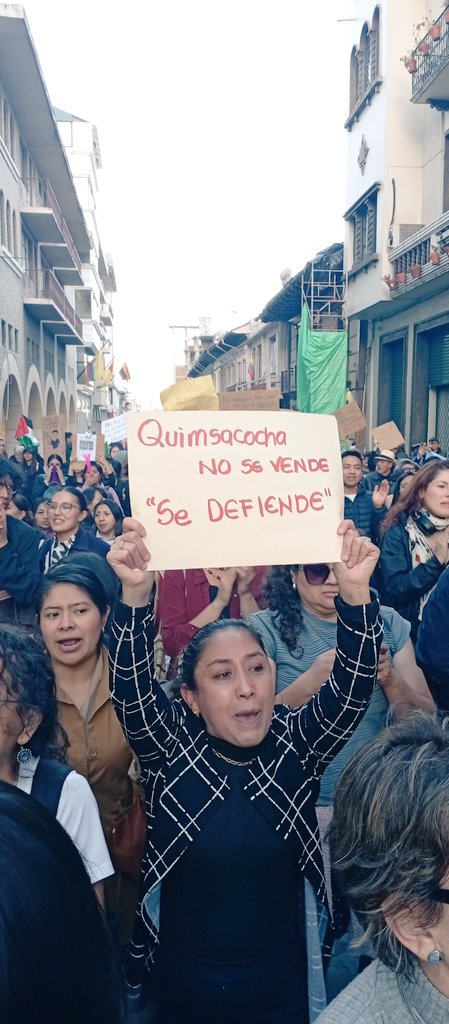 Quimsacocha
NO SE VENDE
"Se DEFIENDE"